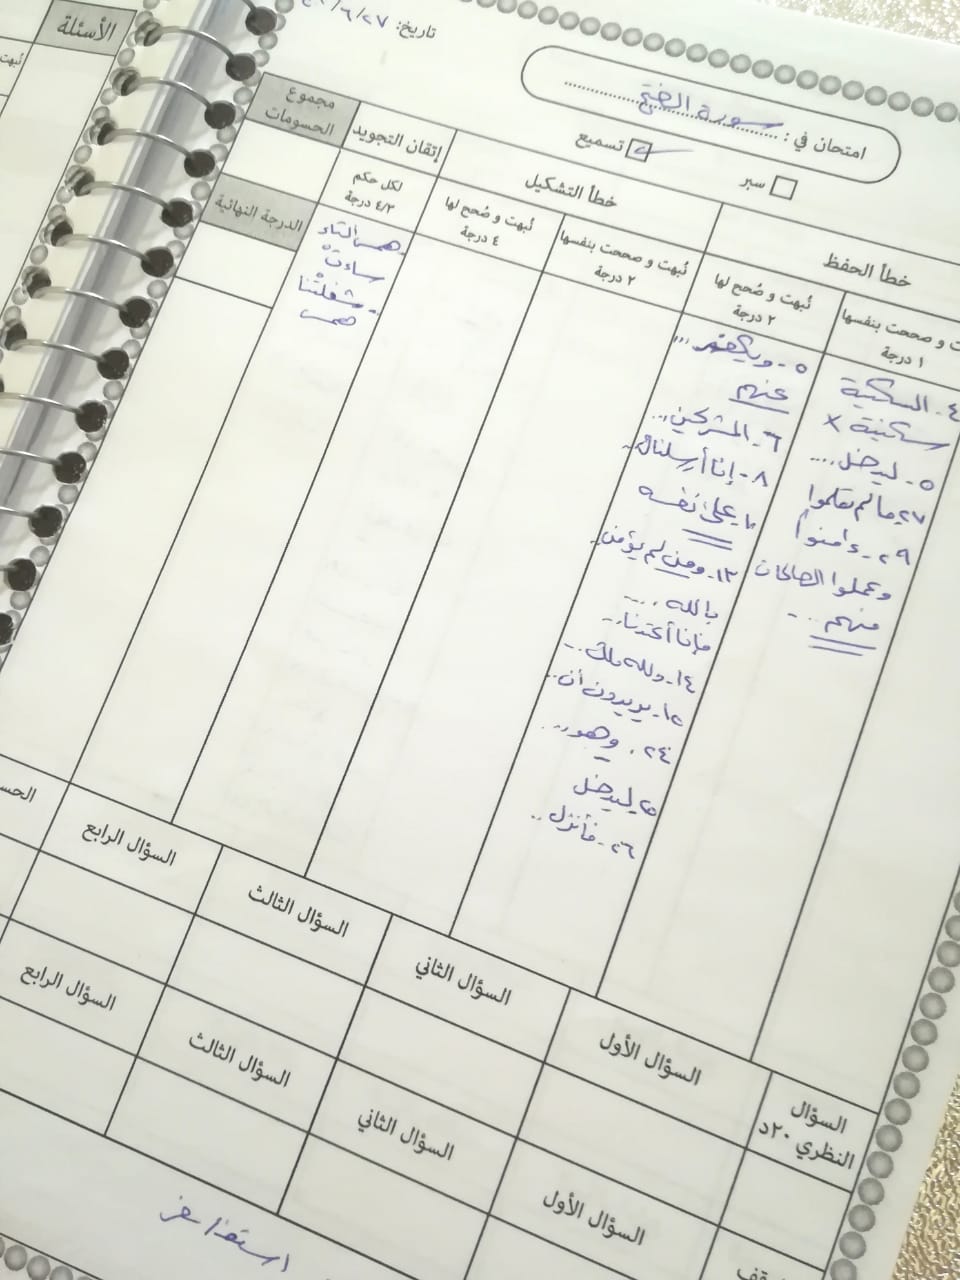 تاريخ: ٢٧/٦/
امتحان في: سورة الفتح
سبر
تسميع
خطأ الحفظ
خطأ التشكيل
إتقان التجويد
مجموع الحسومات
نُبهت و صُحح لها
٢ درجة
و صححت بنفسها
١ درجة
نُبهت و صححت بنفسها
٢ درجة
نُبهت و صُحح لها
٤ درجة
لكل حكم
٤/٢ درجة
الدرجة النهائية
٤- السكينة
سكينة ×
٥- ليدخل ....
٢٧- ما لم تعلموا
٢٩- ءامنوا
وعملوا الصالحات
منهم ..
٥- ويكفر ...
عنهم
٦- المشركين ..
٨- إنا أرسلناك ..
١٠- على نفسه
١٣- ومن لم يؤمن ..
بالله ....
فإنا أعتدنا ..
١٤- ولله ملك ..
١٥- يريدون أن ..
٢٤- وهو ..
٢٥- ليدخل
٢٦- فأنزل ..
همس التاء
ساءتْ
شغلتْنا
همس
السؤال النظري ٢٠د
السؤال الأول
السؤال الثاني
السؤال الثالث
السؤال الرابع
السؤال الأول
السؤال الثاني
السؤال الثالث
السؤال الرابع
الأسئلة